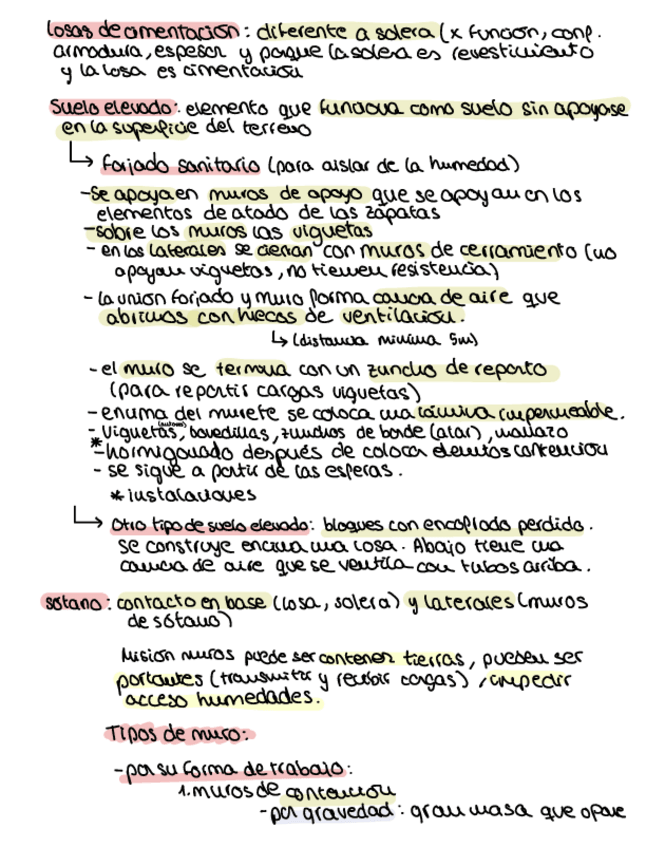 Losas de cimentación: diferente a solera (x función, comp.
armadura, espesor y porque la solera es revestimiento
y la losa es cimentación
Suelo elevado: elemento que funciona como suelo sin apoyarse
en la superficie del terreno
↳ Forjado sanitario (para aislar de la humedad)
-Se apoya en muros de apoyo que se apoyan en los
elementos de atado de las zapatas
-sobre los muros las viguetas
- en los laterales se cierran con muros de cerramiento (no
apoyan viguetas, no tienen resistencia)
- la union forjado y muro forma camara de aire que
abrimos con huecos de ventilación.
↳ (distancia minima 5m)
- el muro se termina con un zuncho de reparto
(para repartir cargas viguetas)
- encima del murete se coloca una lámina impermeable.
- viguetas, bovedillas, zunchos de borde (atar), mallazo
*-hormigonado después de coloca elementos contención
- se sigue a partir de las esperas.
* instalaciones
↳ Otro tipo de suelo elevado: bloques con encofrado perdido.
Se construye encima una losa. Abajo tiene una
camara de aire que se ventila con tubos arriba.
sótano: contacto en base (losa, solera) y laterales (muros
de sótano)
Misión muros puede ser contener tierras, pueden ser
portantes (transmitir y recibir cargas), impedir
acceso humedades.
Tipos de muro:
-por su forma de trabajo:
1. muros de contención
-por gravedad: gran masa que opone